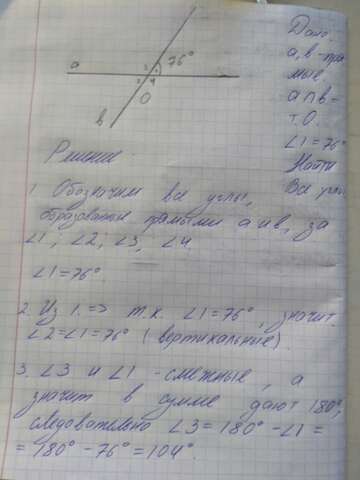 a
3
1
76°
2
4
O
b
Дано:
a, b - пря
мые.
a ∩ b =
т. О.
∠1 = 76°
Найти
Все углы
Решение
1. Обозначим все углы,
образованые прямыми a и b, за
∠1; ∠2; ∠3, ∠4.
∠1 = 76°.
2. Из 1. => т.к. ∠1 = 76°, значит
∠2 = ∠1 = 76° (вертикальные).
3. ∠3 и ∠1 - смежные, а
значит в сумме дают 180°,
следовательно ∠3 = 180° - ∠1 =
= 180° - 76° = 104°.